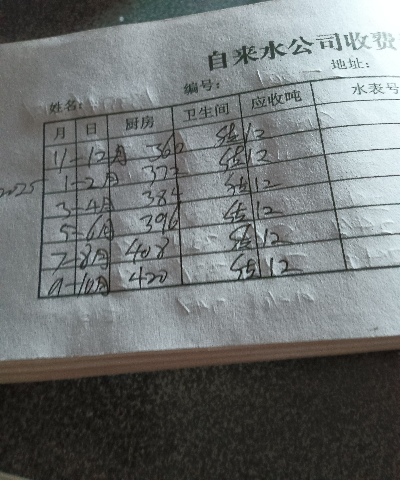 自来水公司收费
姓名: 编号: 地址:
月 日 厨房 卫生间 应收吨 水表号
11-12月 360 估 12
2025 1-2月 372 估 12
3-4月 384 估 12
5-6月 396 估 12
7-8月 408 估 12
9-10月 420 估 12